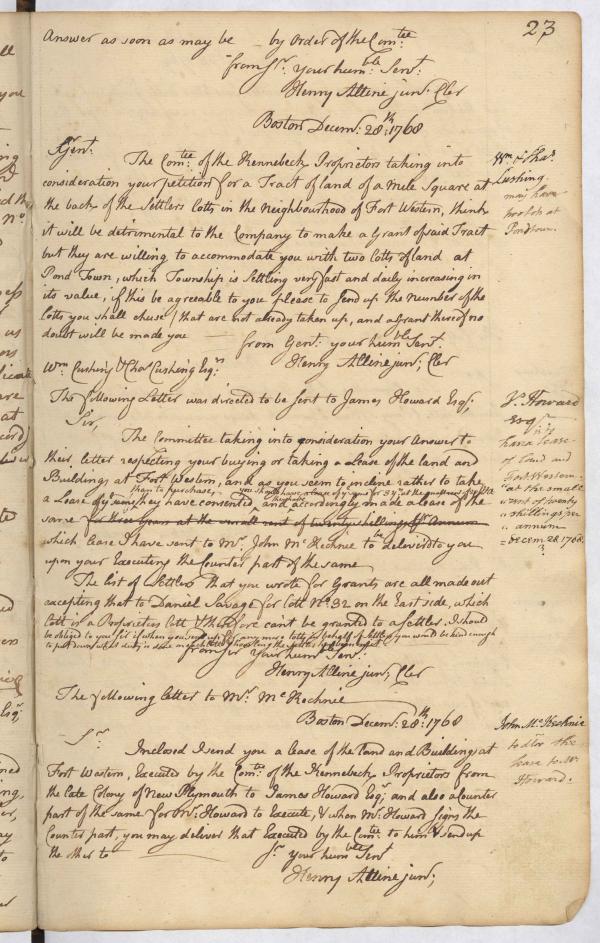 23
Answer as soon as may be by Order of the Comtee
from Sr. your humble Servt.
Henry Alline junr. Cler
Boston Decemr. 28th. 1768
Gent.
The Comtee of the Kennebeck Proprietors taking into
consideration your petition for a Tract of land of a mile Square at
the back of the Settlers Lotts in the Neighbourhood of Fort Western, think
it will be detrimental to the Company to make a Grant of said Tract
but they are willing to accommodate you with two Lotts of land at
Pond Town, which Township is Settling very fast and daily increasing in
its value, if this be agreeable to you please to Send up the Number of the
Lotts you shall chuse / that are not already taken up, and a Grant thereof no
doubt will be made you from Gent. your humble Servt.
Wm Cushing & Chas Cushing Esqrs Henry Alline junr, Cler
Wm & Chas.
Cushing
may have
two lots at
Pondtown.
The following Letter was directed to be Sent to James Howard Esqr;
Sir,
The Committee taking into consideration your Answer to
their letter respecting your buying or taking a Lease of the land and
Buildings at Fort Western, and as you seem to incline rather to take
a Lease of ye same than to purchase, they have consented and accordingly made a Lease of the
same for three years at the small rent of twenty shillings per Annum
which lease I have sent to Mr. John McKechnie to be deliver'd to you
upon your Executing the Counter part of the same
The list of Settlers that you wrote for Grants are all made out
excepting that to Daniel Savage for Lott No. 32 on the East side, which
Lott is a Proprietors Lott & therefore can't be granted to a settler. I should
be obliged to you Sir if when you send up for any more lotts in behalf of settlers you would be kind enough
from Sir your humble Servt.
Henry Alline junr; Cler
Js. Howard
Esqr
have a lease
of land and
Fort Western
at the small
rent of twenty
shillings per
annum
Decem 28 1768
The following letter to Mr. McKechnie
Boston Decemr. 28th. 1768
Sr.
Inclosed I send you a lease of the land and Buildings at
Fort Western, Executed by the Comtee of the Kennebeck Proprietors from
the late Colony of New Plymouth to James Howard Esqr; and also a Counter
part of the same for Mr. Howard to Execute, & when Mr. Howard signs the
Counter part, you may deliver that Executed by the Comtee to him & send up
the other to Sr. your humble Servt
Henry Alline junr;
John McKechnie
to dlr the
lease to Mr
Howard.